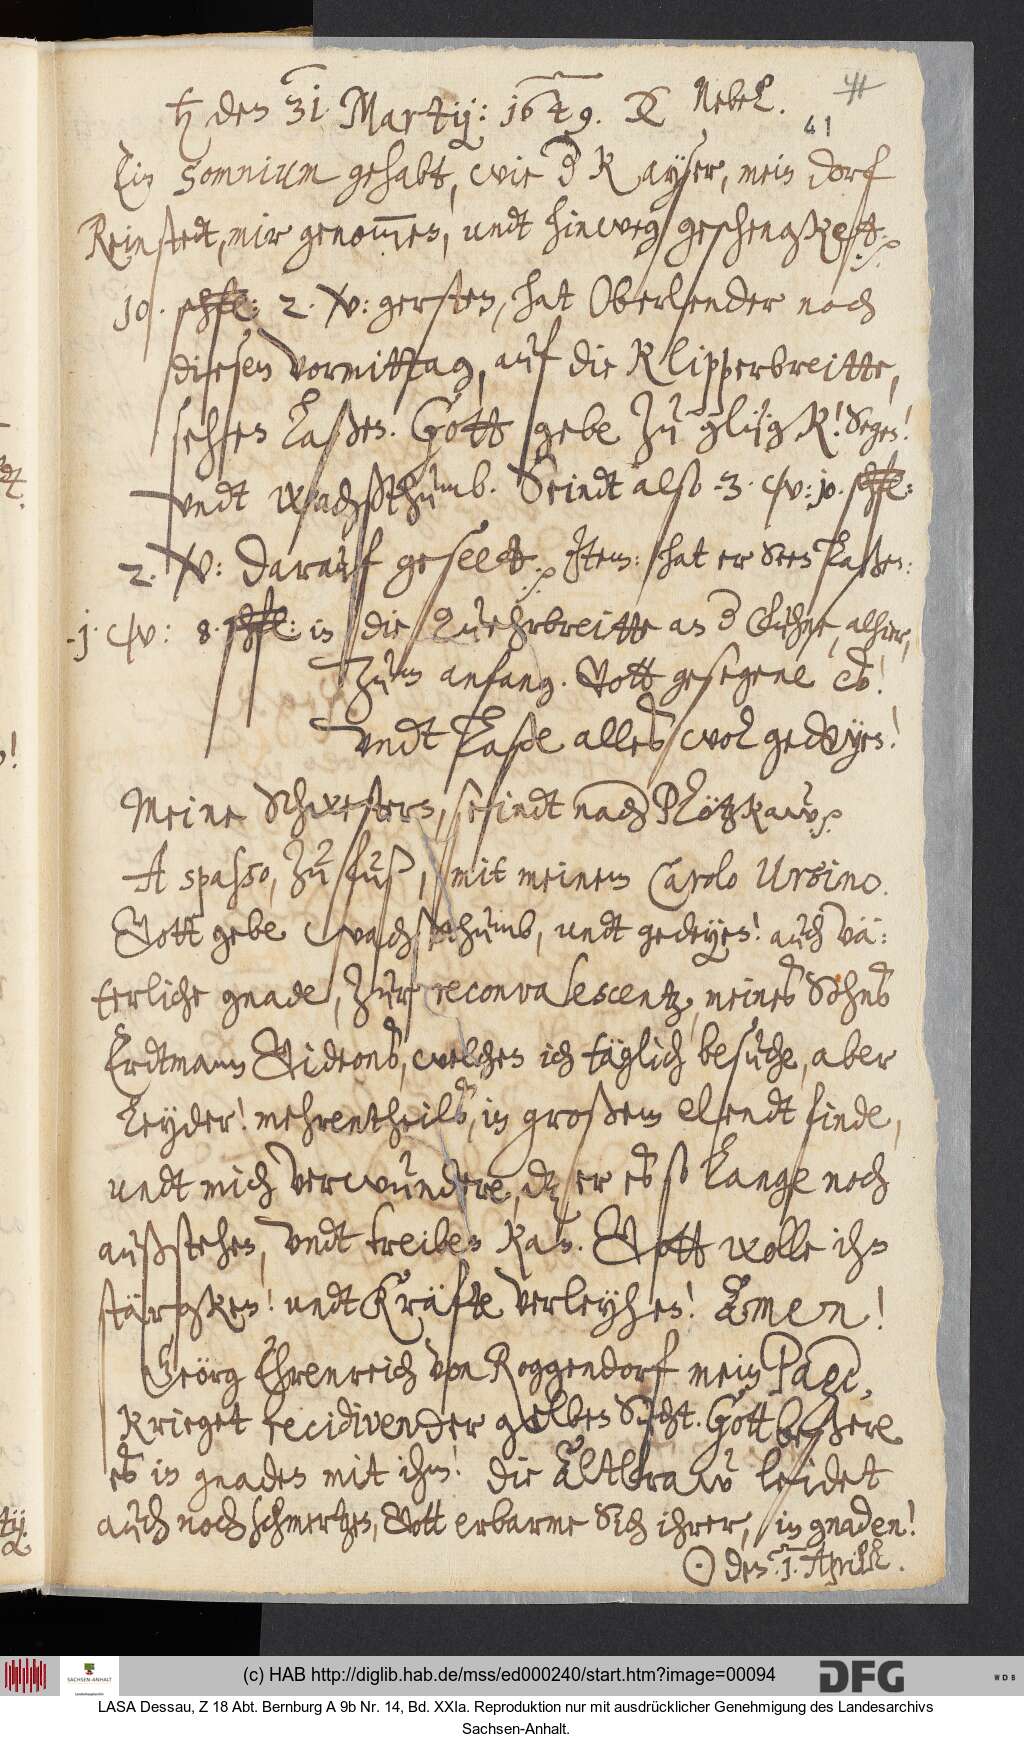 ♄ den 31. Martij: 1649. Nebel.
41
Ein somnium gehabt, wie d Kayser, mein dorf
Reinstedt, mir genom̅en, undt hinweg geschengkett.
10. schfl: 2. W: gersten, hat Oberlender noch
diesen Vormittag, auf die Klipperbreitte,
sehen laßen. Gott gebe zu glügk! Segen!
Undt wachßthumb. Seindt also 3. W: 10. schfl:
2. W: darauf geseett. Item: hat er Seen laßen:
1. W: 8. schfl: in die Quehrbreitte an d Fuhne, alhier,
Zum anfang. Gott gesegene es!
Undt laße alles wol gedeyen!
Meine Schwestern, seindt nach Plötzkaw
A spasso, zu fuß, mit meinem Carolo Ursino.
Gott gebe wachsthumb, undt gedeyen! auch vä:
terliche gnade, zur reconvalescentz, meines Sohns
Erdtmann Gideons, welchen ich täglich besuche, aber
leyder! mehrentheils, in großem elendt finde,
undt mich verwundere, dz er es so lange noch
außstehen, Undt treiben kan. Gott wolle ihn
stärgken! undt Kräfte verleyhen! Amen!
Geörg Ehrenreich von Roggendorf mein Page,
krieget recidiven der gelben Sucht. Gott beßere
es in gnaden mit ihm! die Altfraw leidet
auch noch schmertzen, Gott erbarme Sich ihrer, in gnaden!
☉ den 1. Aprill.
(c) HAB http://diglib.hab.de/mss/ed000240/start.htm?image=00094
SACHSEN-ANHALT
DFG
WDB
LASA Dessau, Z 18 Abt. Bernburg A 9b Nr. 14, Bd. XXIa. Reproduktion nur mit ausdrücklicher Genehmigung des Landesarchivs
Sachsen-Anhalt.